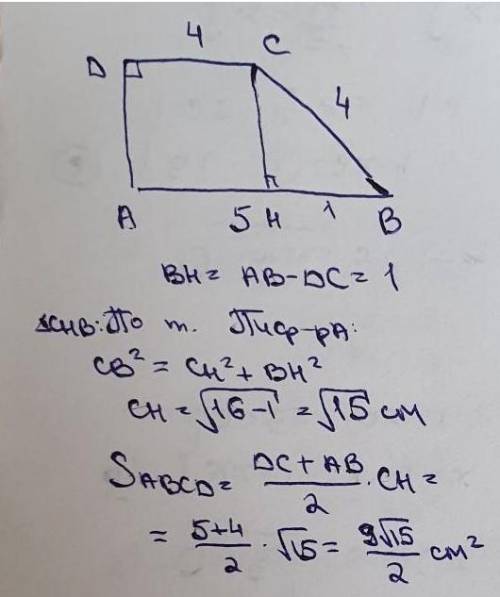 4
D C
4
A 5 H 1 B
BH = AB - DC = 1
△CHB: По т. Пиф-рА:
CB² = CH² + BH²
CH = √16-1 = √15 см
SABCD = DC + AB / 2 · CH =
= 5+4 / 2 · √15 = 9√15 / 2 см²